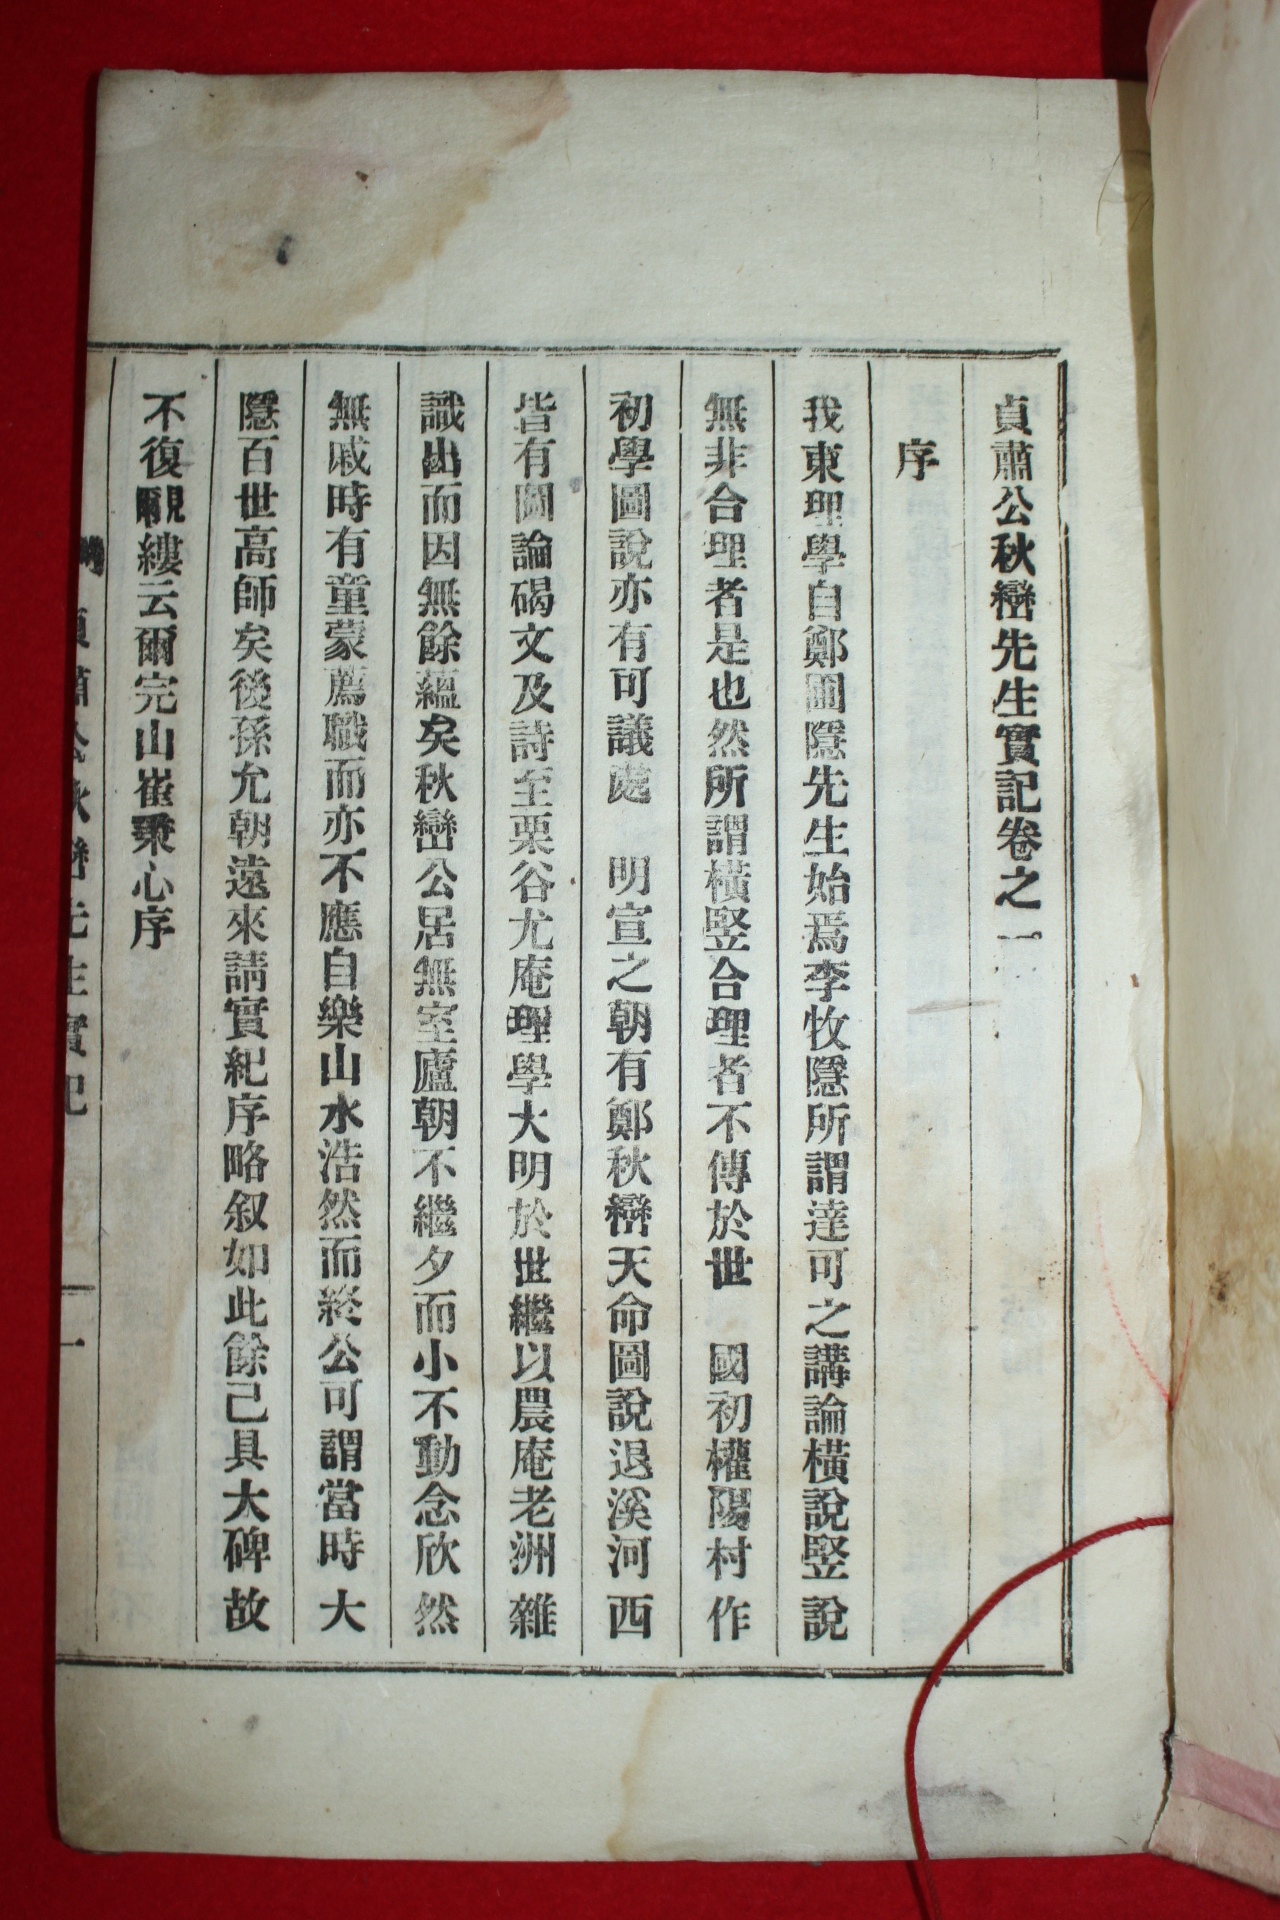 貞肅公秋巒先生實記卷之一
序
我東理學自鄭圃隱先生始焉李牧隱所謂達可之講論橫說竪說
無非合理者是也然所謂橫竪合理者不傳於世　國初權陽村作
初學圖說亦有可議處　明宣之朝有鄭秋巒天命圖說退溪河西
皆有圖論碣文及詩至栗谷尤庵理學大明於世繼以農庵老洲雜
識出而因無餘蘊矣秋巒公居無室廬朝不繼夕而小不動念欣然
無戚時有童蒙薦職而亦不應自樂山水浩然而終公可謂當時大
隱百世高師矣後孫允朝遠來請實紀序略叙如此餘已具大碑故
不復覼縷云爾完山崔秉心序
貞肅公秋巒先生實記
一